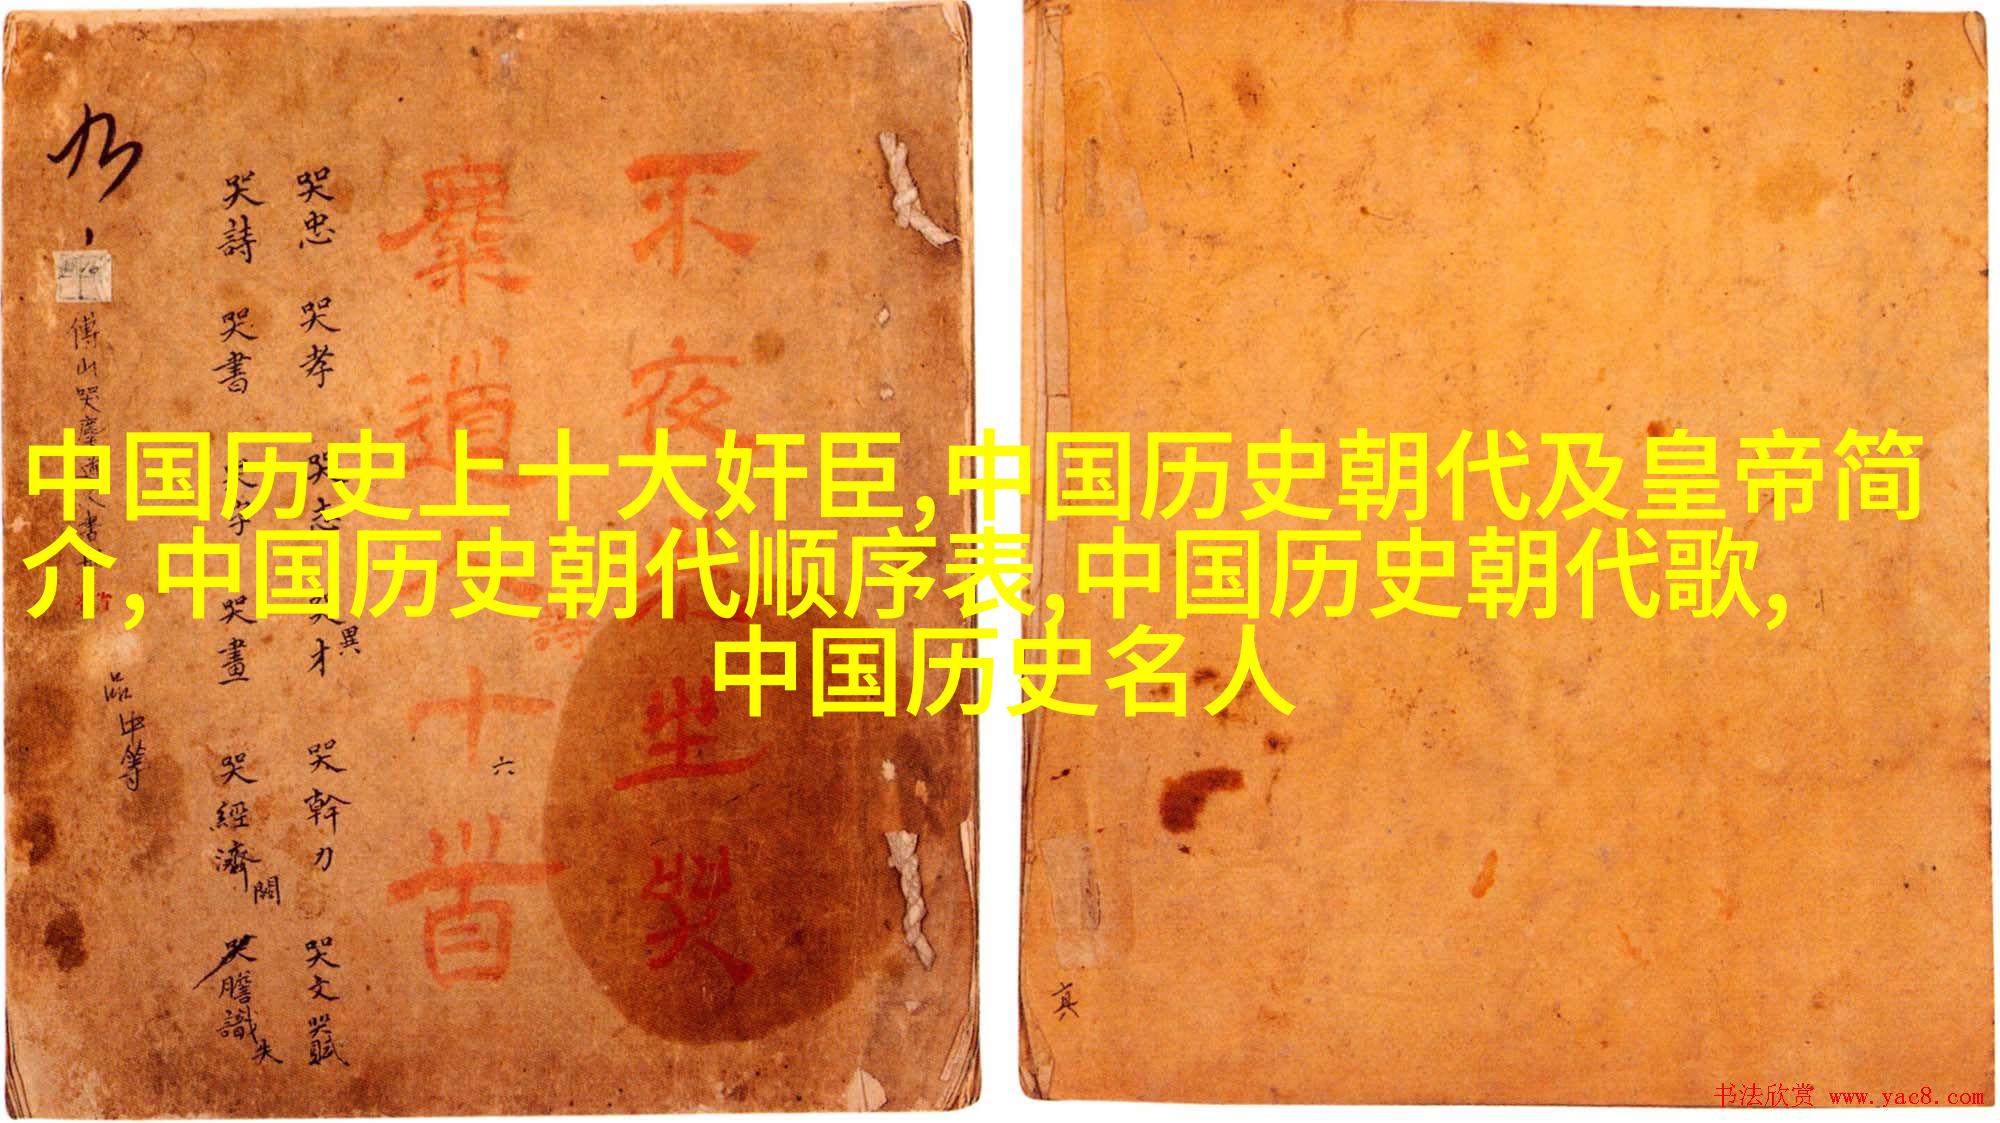 中国历史上十大奸臣,中国历史朝代及皇帝简
介,中国历史朝代顺序表,中国历史朝代歌,
中国历史名人
不夜 坐哭
道 十首
哭忠 哭孝 哭志 哭才異 哭幹力 哭文哭賦
哭詩 哭書 哭字 哭畫 哭經濟 關 哭膽識 失
傅山哭 道人書
品中等
六
真
书法欣赏 www.yac8.com